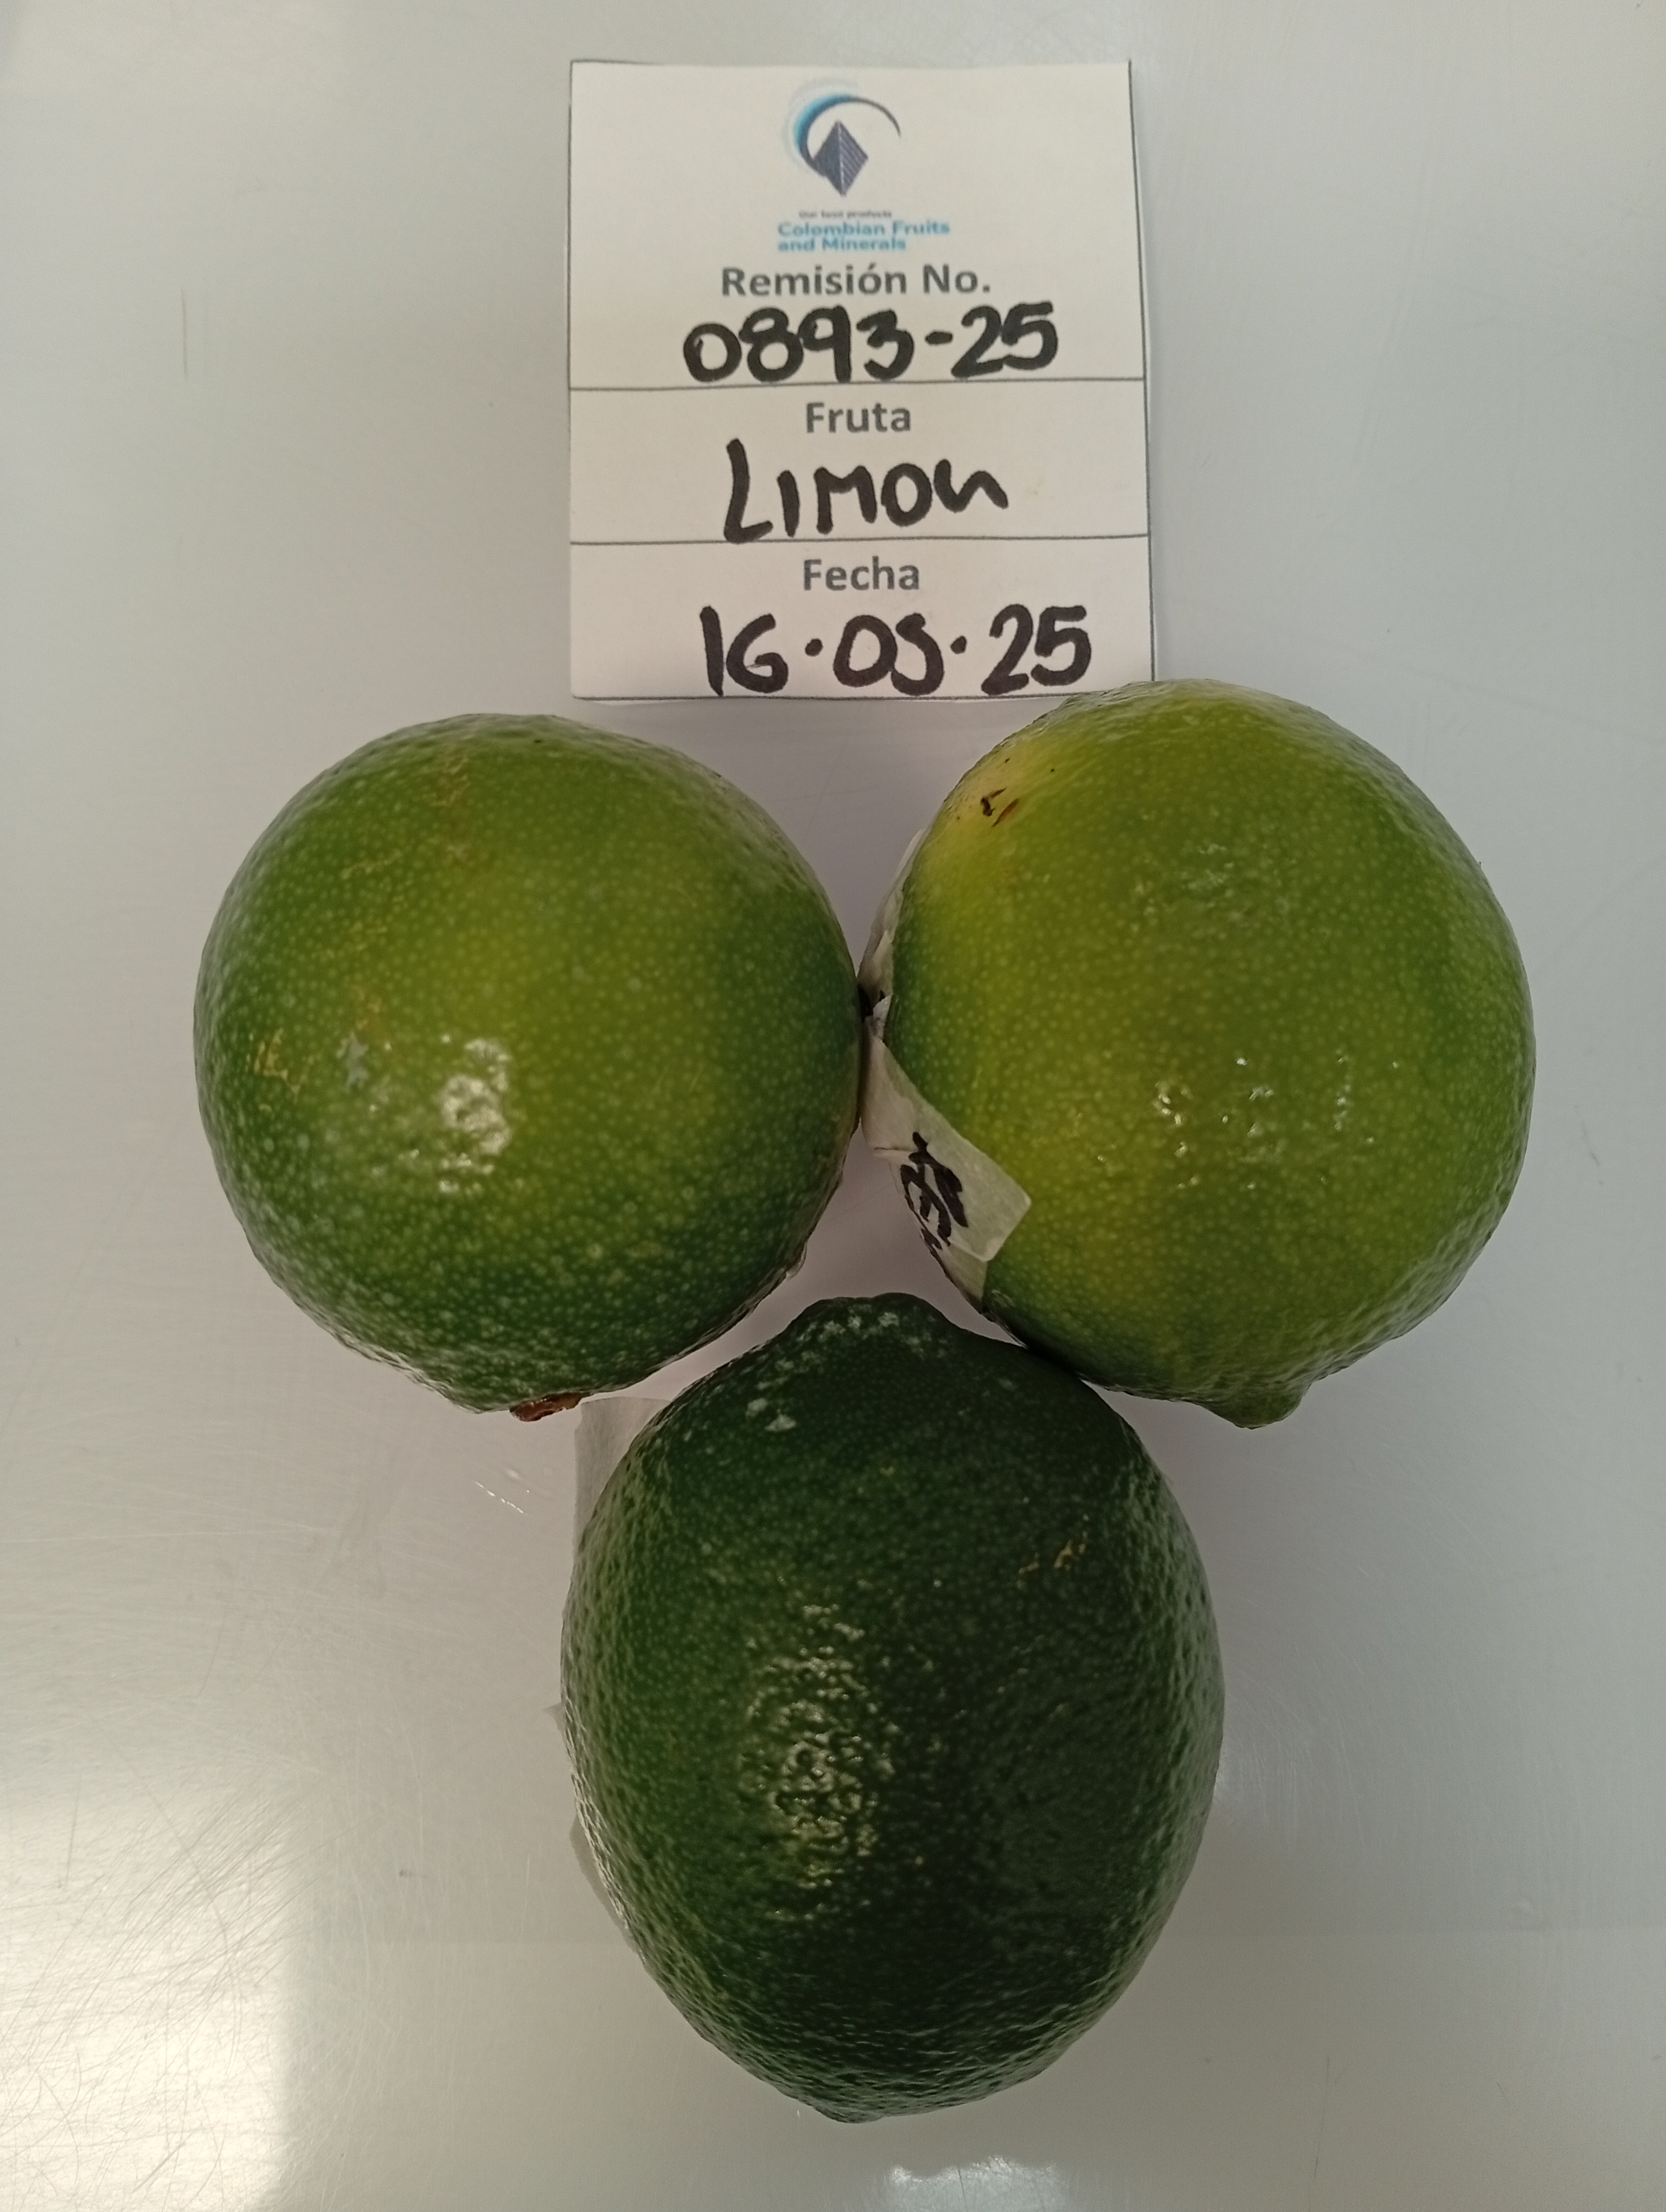 Our best products
Colombian Fruits
and Minerals
Remisión No.
0893-25
Fruta
LIMON
Fecha
16.05.25